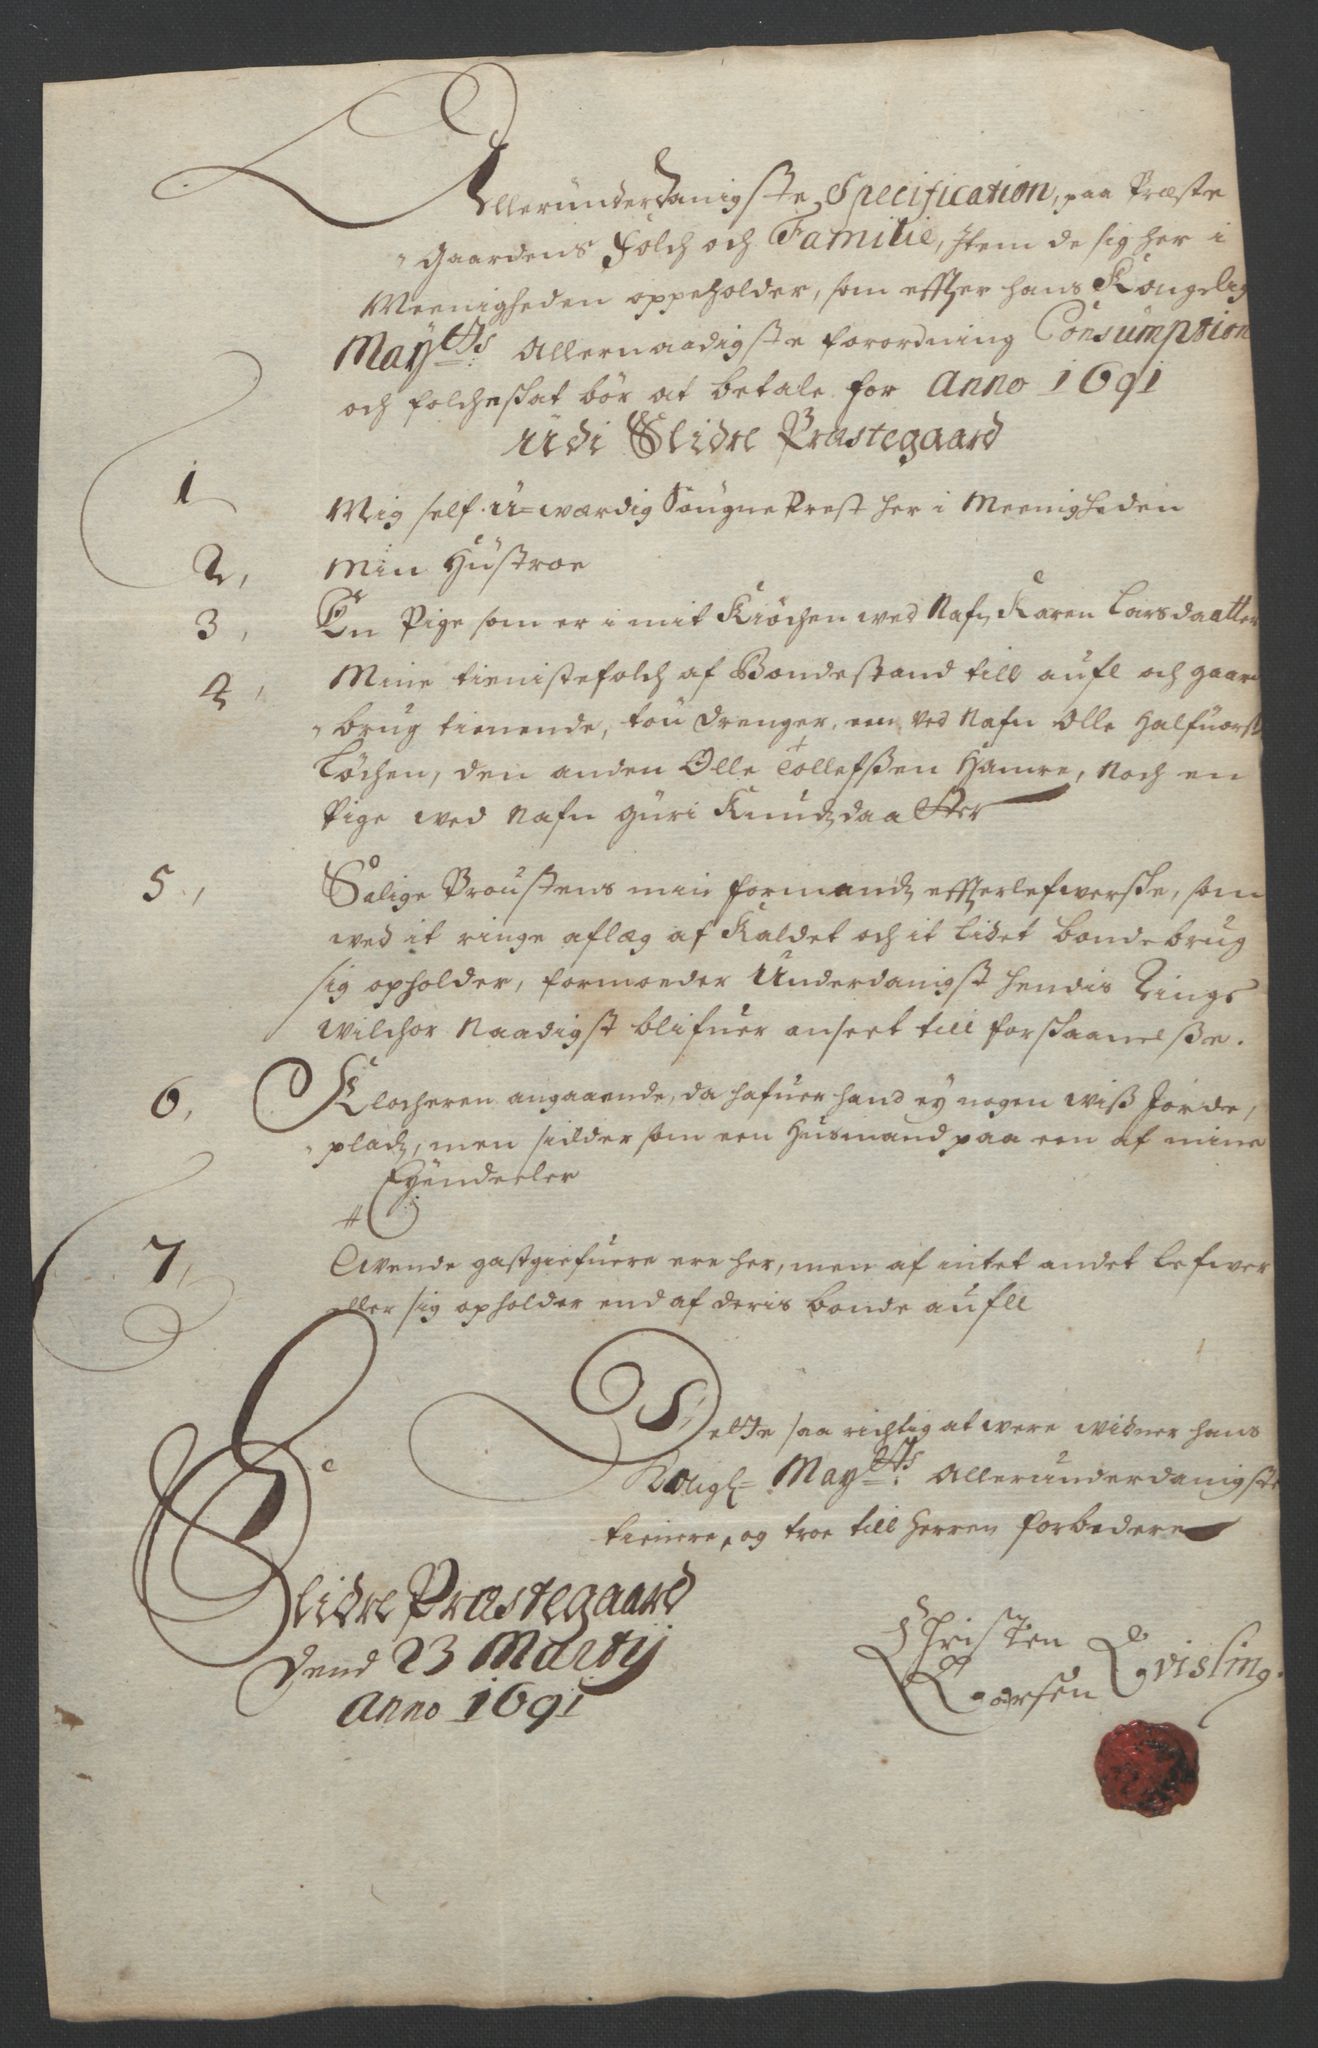 Allerunderdanigste Specification, paa Præste
gaardens Folch och Familie, Item de sig her i
Meenigheden oppeholder, som effter hans Kongelig
Maytts Allernaadigste forordning Consumption
och folcheskat bör at betale for Anno 1691
Udi Slidre Præstegaard
1 Mig self u=wærdig Sougne Prest her i Meenigheden
2, Min Hüstroe
3, En Pige som er i mit Kiöchen wed Nafn Karen Larsdaatter
4, Mine tienistefolch af Bondestand till aufl och gaard
brug tienende, tou drenger, een ved Nafn Olle Halfuors
Löchen, den anden Olle Tollefssen Hamre, Noch en
Pige wed Nafn Guri Knudzdaatter
5, Salige Proustens min formandz effterlefwerske, som
wed it ringe aflæg af Kaldet och it lidet bondebrug
sig opholder, formoeder Underdanigst hendis Rings
wilchor Naadigst blifuer anseet till forskaanelsse.
6, Klocheren angaaende, da hafuer hand ey nogen wiss Jorde,
pladz, men sidder som een Husmand paa een af mine
Eyendeeler
7, Twende gastgiefuere ere her, men af intet andet lefwer
eller sig opholder end af deris bonde aufll
Dette saa richtig at were widner hans
Kongl= Maytts Allerunderdanigste
tienere, og troe till Herren forbedere
Slidre Præstegaard
Dend 23 Martij
Anno 1691
Christen
Larsen Qvisling.